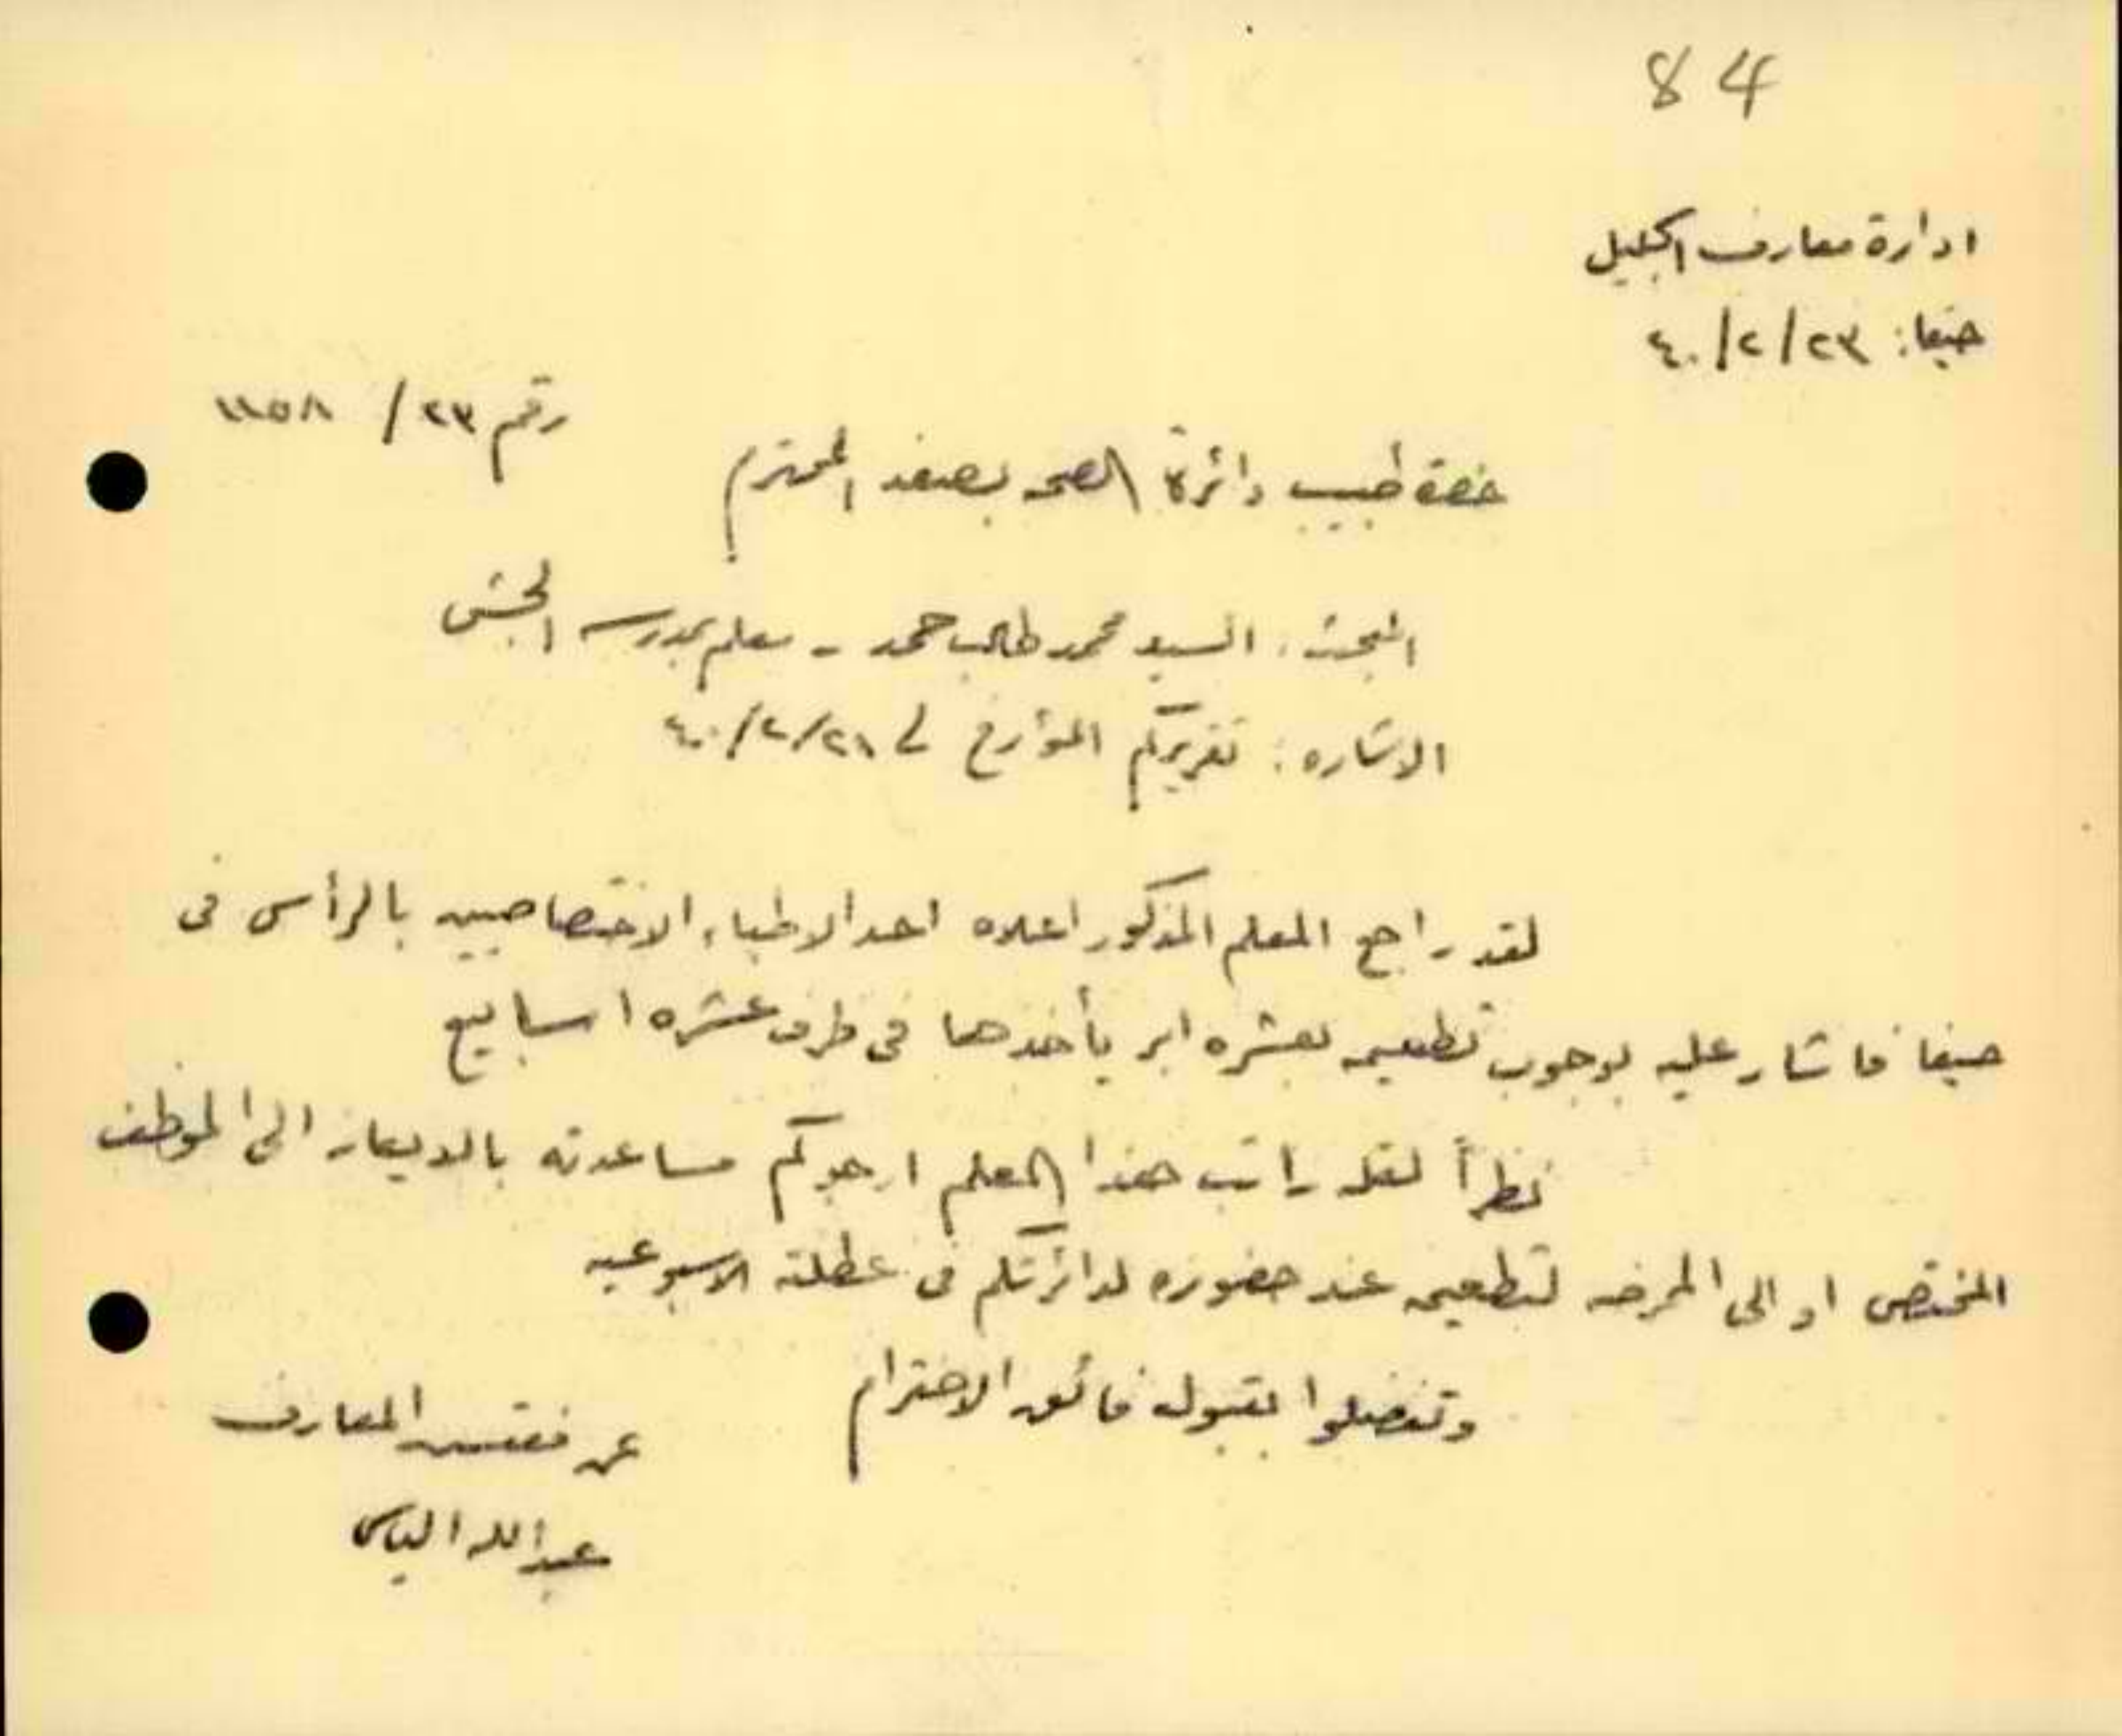 84
ادارة معارف الجليل
حيفا: ٢٣/٢/٤٠
رقم ٢٣/ ١١٥٨
حضرة طبيب دائرة الصحه بصفد المحترم
المبحث: السيد محمد طالب حمد - معلم بمدرسه الجش
الاشاره: تقريركم المؤرخ في ٢١/٢/٤٠
لقد راجع المعلم المذكور اعلاه احد الاطباء الاختصاصيين بالرأس في
حيفا فاشار عليه بوجوب تطعيمه بعشره ابر يأخذها في ظرف عشره اسابيع
نظراً لقلة راتب هذا المعلم ارجوكم مساعدته بالايعاز الى الموظف
المختص او الى الممرضه لتطعيمه عند حضوره لدائرتكم في عطلته الاسبوعيه
وتفضلوا بقبول فائق الاحترام
عن مفتش المعارف
عبدالله الياس